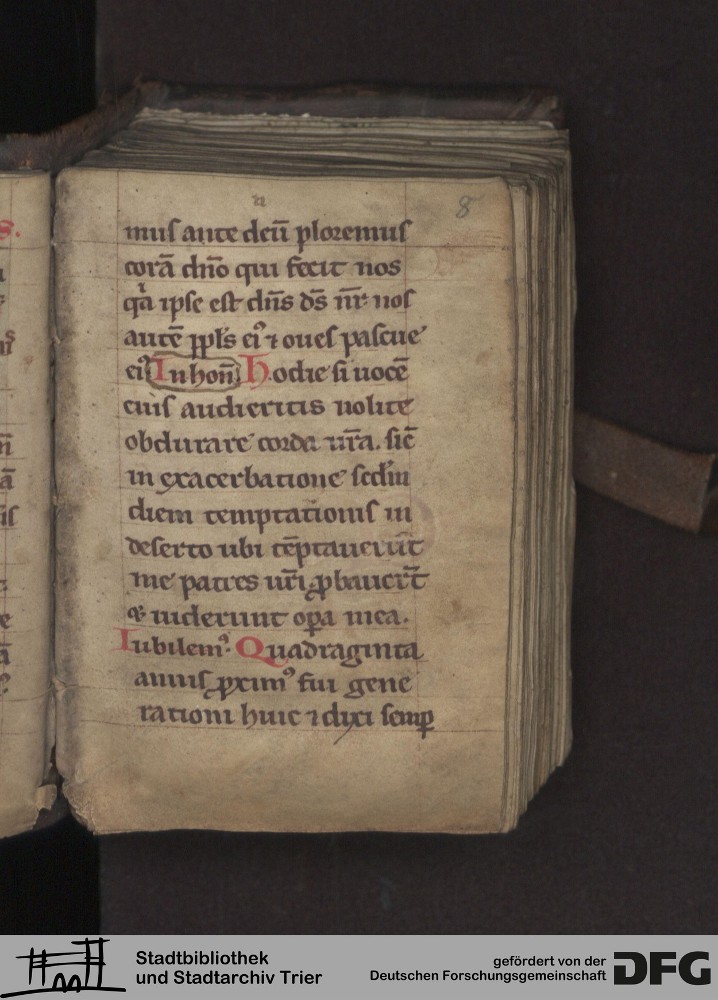 8
mus ante deū ploremus
corā dño qui fecit nos
q̇a ipse est dñs ds̄ nr̄ nos
autē ppl̄s ei⁹ ⁊ oues pascue
ei⁹ In hon̄ Hodie si uocē
eius audieritis nolite
obdurare corda ur̄a. sic̄
in exacerbatione scd̄m
diem temptationis in
deserto ubi tēptauerūt
me patres ur̄i ꝓbauert̄
⁊ uiderunt oꝑa mea.
Iubilem⁹. Quadraginta
annis ꝓxim⁹ fui gene
rationi huic ⁊ dixi semꝑ
Stadtbibliothek
und Stadtarchiv Trier
gefördert von der
Deutschen Forschungsgemeinschaft
DFG